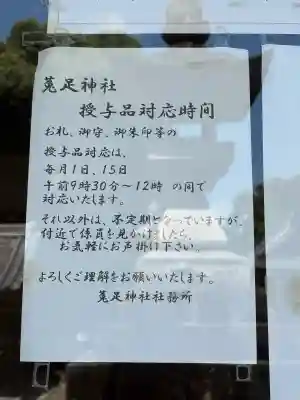 菟足神社
授与品対応時間
お札、御守、御朱印等の
授与品対応は、
毎月1日、15日
午前9時30分～12時 の間で
対応いたします。
それ以外は、不定期となっていますが、
付近で係員を見かけましたら、
お気軽にお声掛け下さい。
よろしくご理解をお願いいたします。
菟足神社社務所